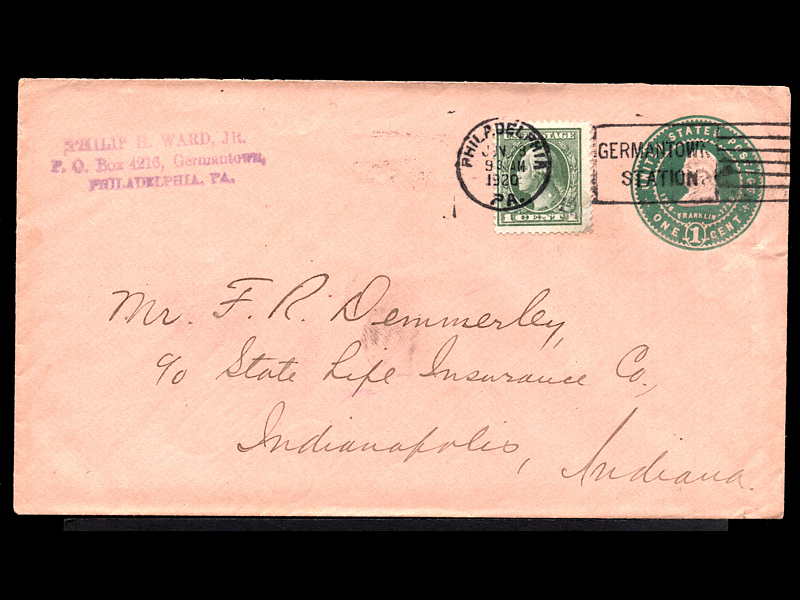 PHILIP H. WARD, JR.
P. O. Box 4216, Germantown,
PHILADELPHIA, PA.
PHILADELPHIA
9
1920
PA.
POSTAGE
GERMANTOWN
STATION
STATES
FRANKLIN
ONE 1 CENT
Mr. F. R. Demmerley,
c/o State Life Insurance Co.,
Indianapolis, Indiana.